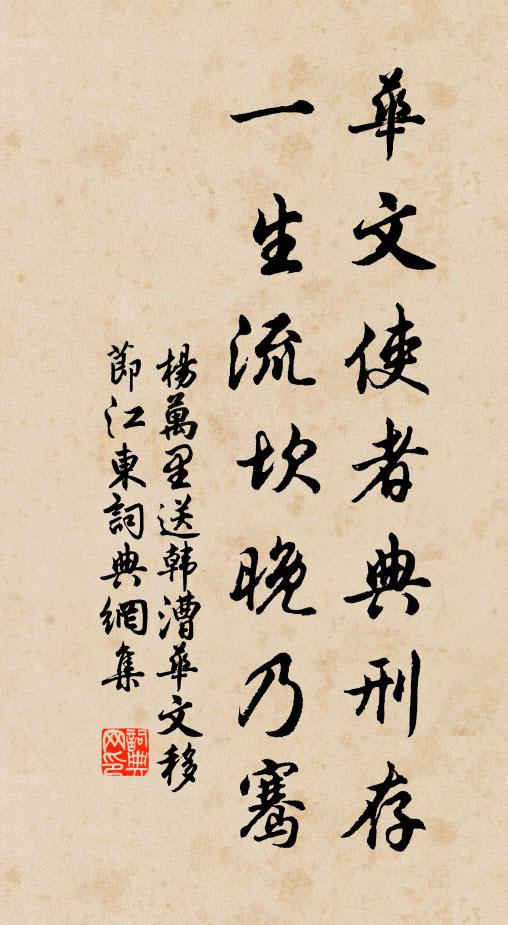 華文使者典刑存
一生流坎晚乃騫
楊萬里送韩漕華文移
節江東詞典網集
詞典
网印